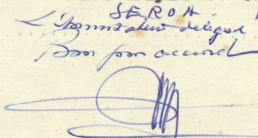 SEROA.
L'administrateur délégué
Bon pour accord